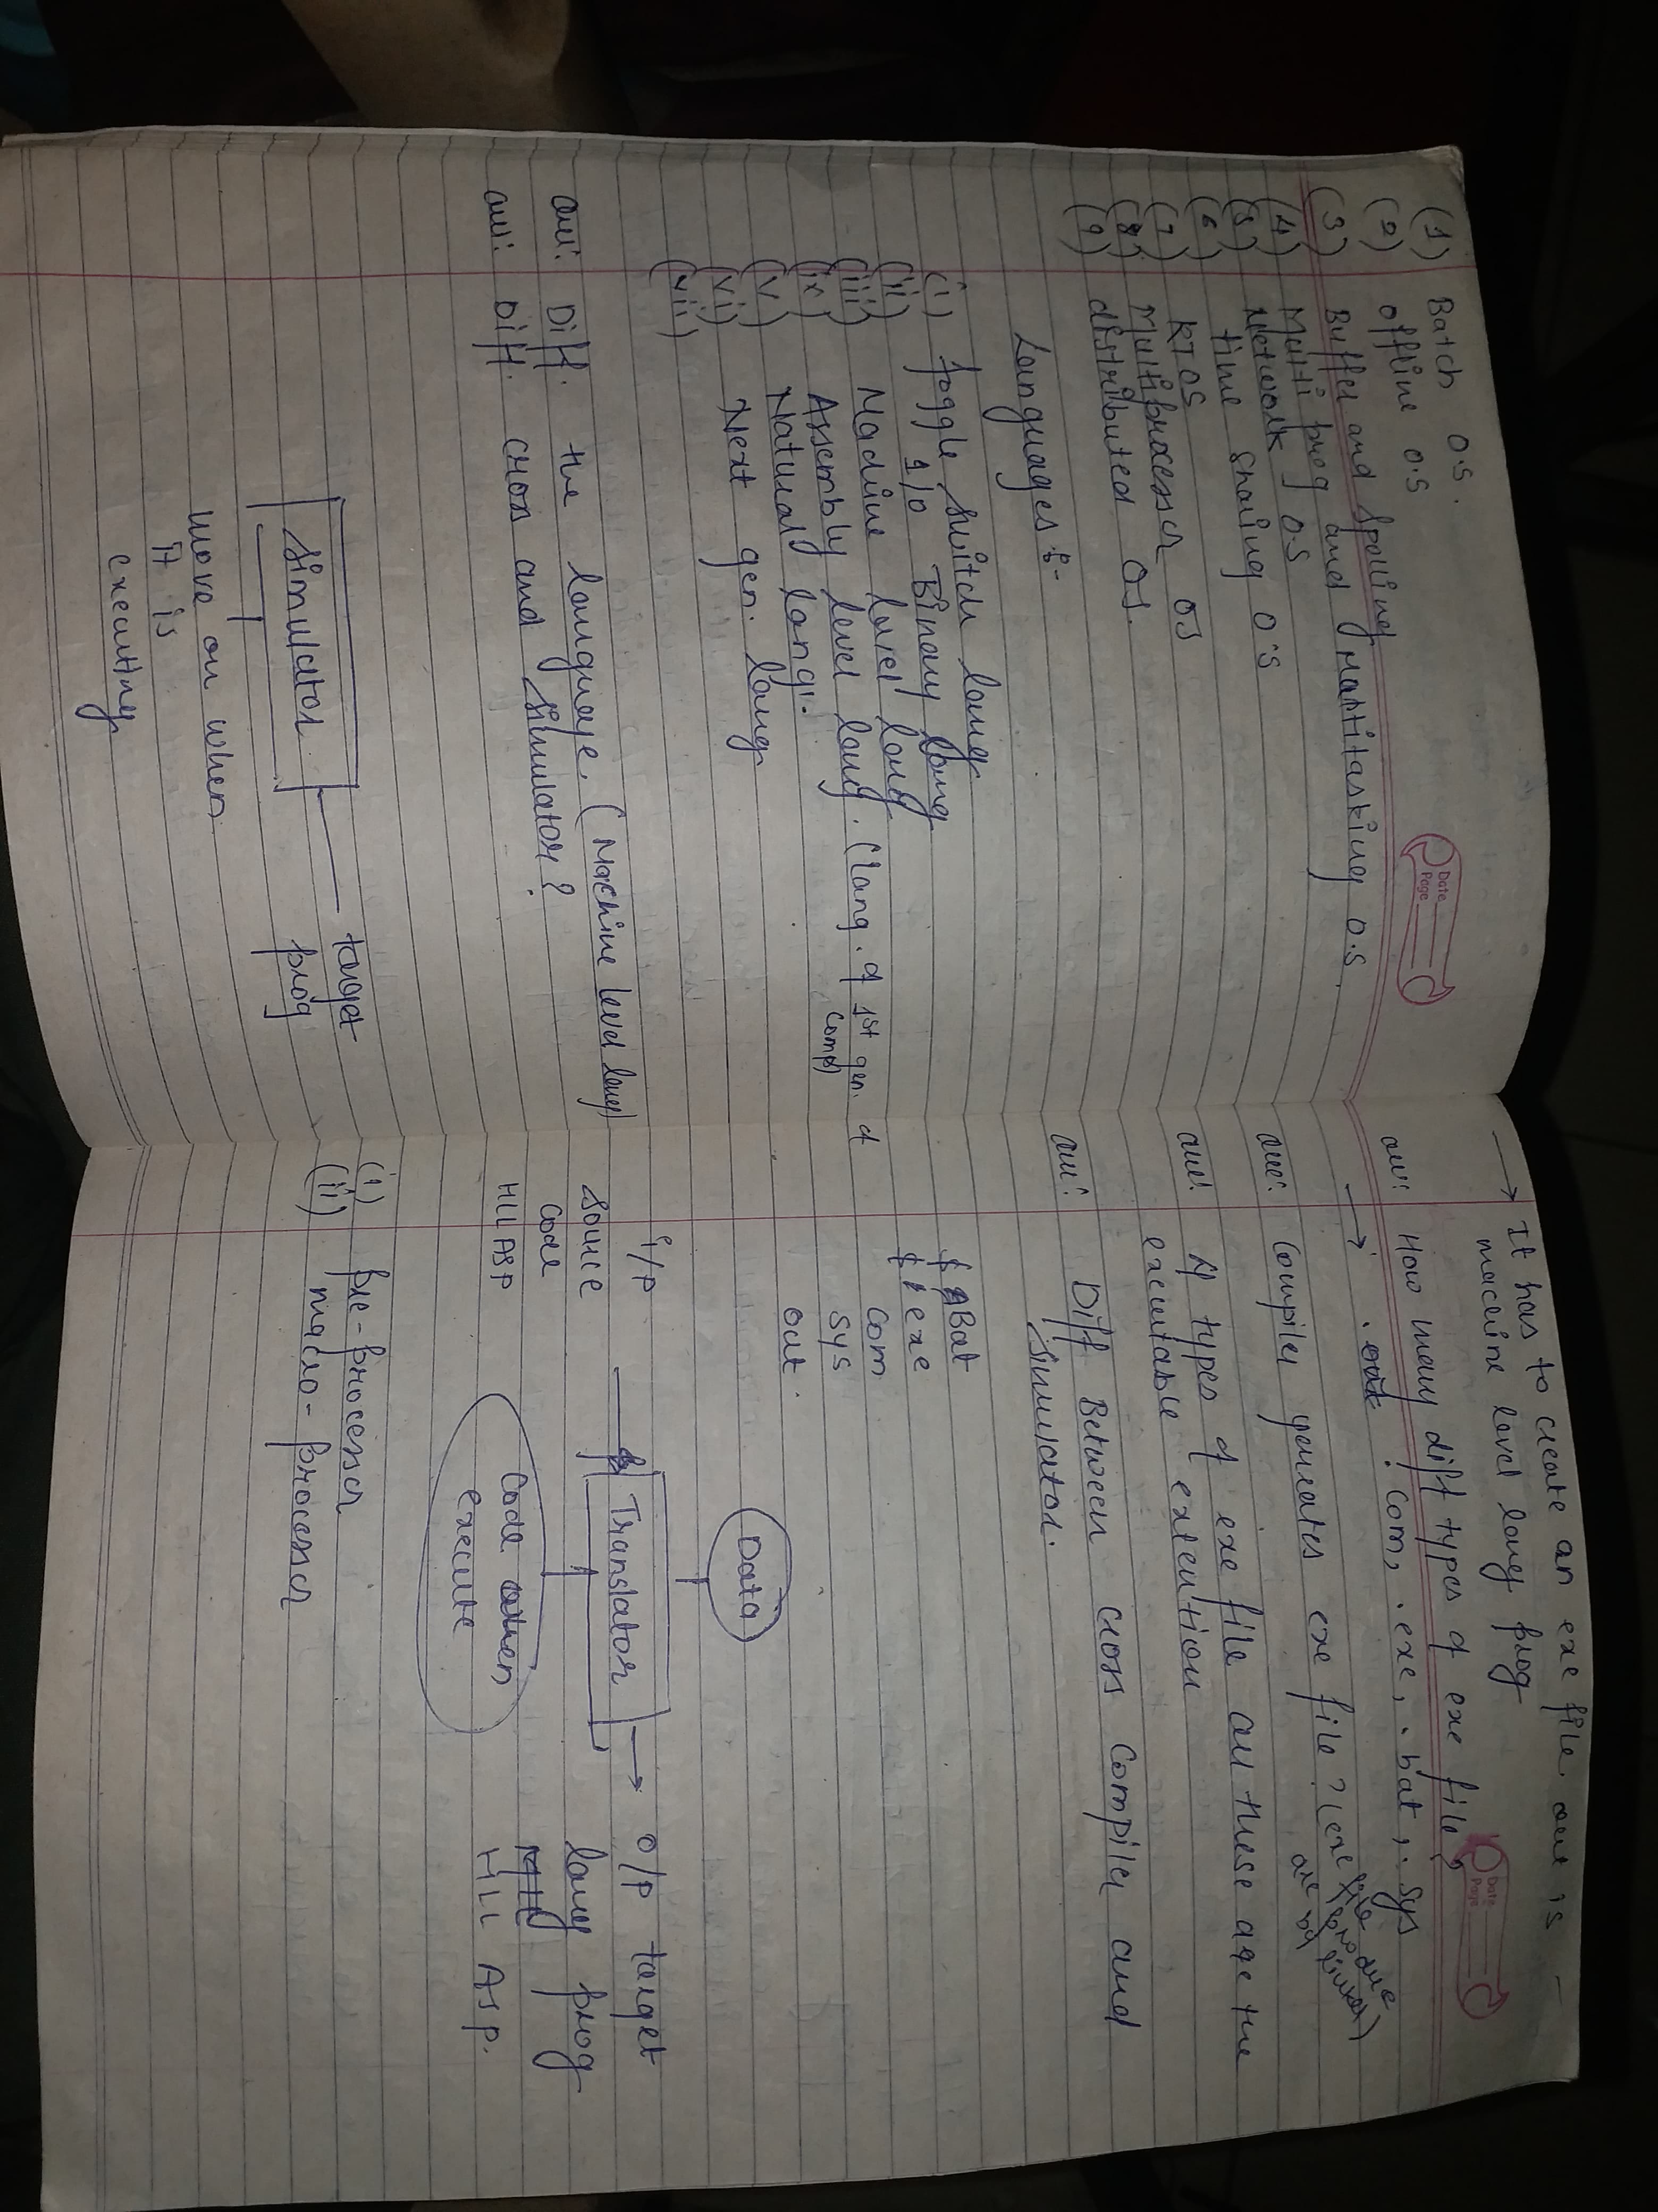 Date
Page
(1) Batch O.S.
(2) offline O.S
(3) Buffer and Spooling
Multi prog and Multitasking O.S
(4) Network OS
(5) time sharing O'S
(6) RTOS
(7) Multiprocessor OS
(8) distributed OS.
(9)
Languages :-
(i) Toggle switch lang
(ii) 1/0 Binary lang
(iii) Machine level lang
(iv) Assembly level lang. (lang. of 1st gen. of comp)
(v) Natural lang.
(vi) Next gen. lang
(vii)
Diff. the language. (Machine level lang)
Diff. cross and simulator?
Simulator
target
prog
work on when
it is
executing
→ It has to create an exe file.
machine level lang prog
Date
Page
How many diff types of exe file?
→ .com, .exe, .bat, .sys
Compiler generates exe file?
4 types of exe file all these are the
executable extention
Diff Between cross compiler and
simulator.
Bat
exe
com
sys
out.
Data
i/p
Source
Code
HLL ASP
Translator
Code when
execute
O/P target
lang prog
HLL ASP.
(i) Pre-processor
(ii) macro-processor